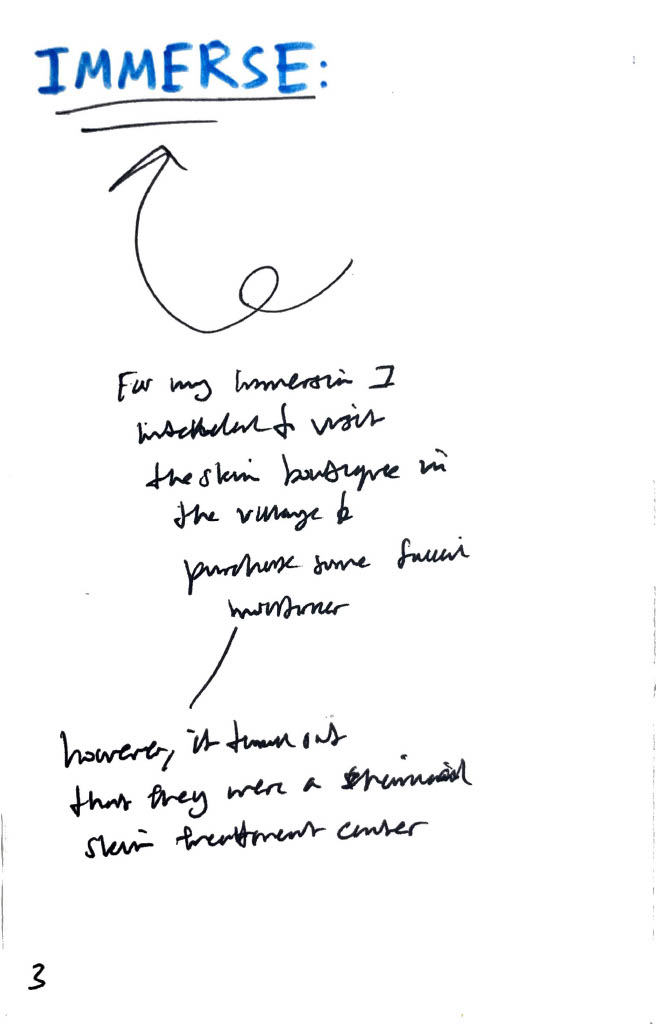 IMMERSE:
For my immersion I
intended to visit
the skin boutique in
the village &
purchase some facial
moisturiser
however, it turns out
that they were a
skin treatment center
3